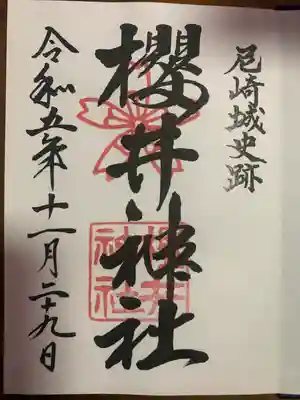 尼崎城史跡
櫻井神社
令和五年十一月二十九日
櫻井
神社